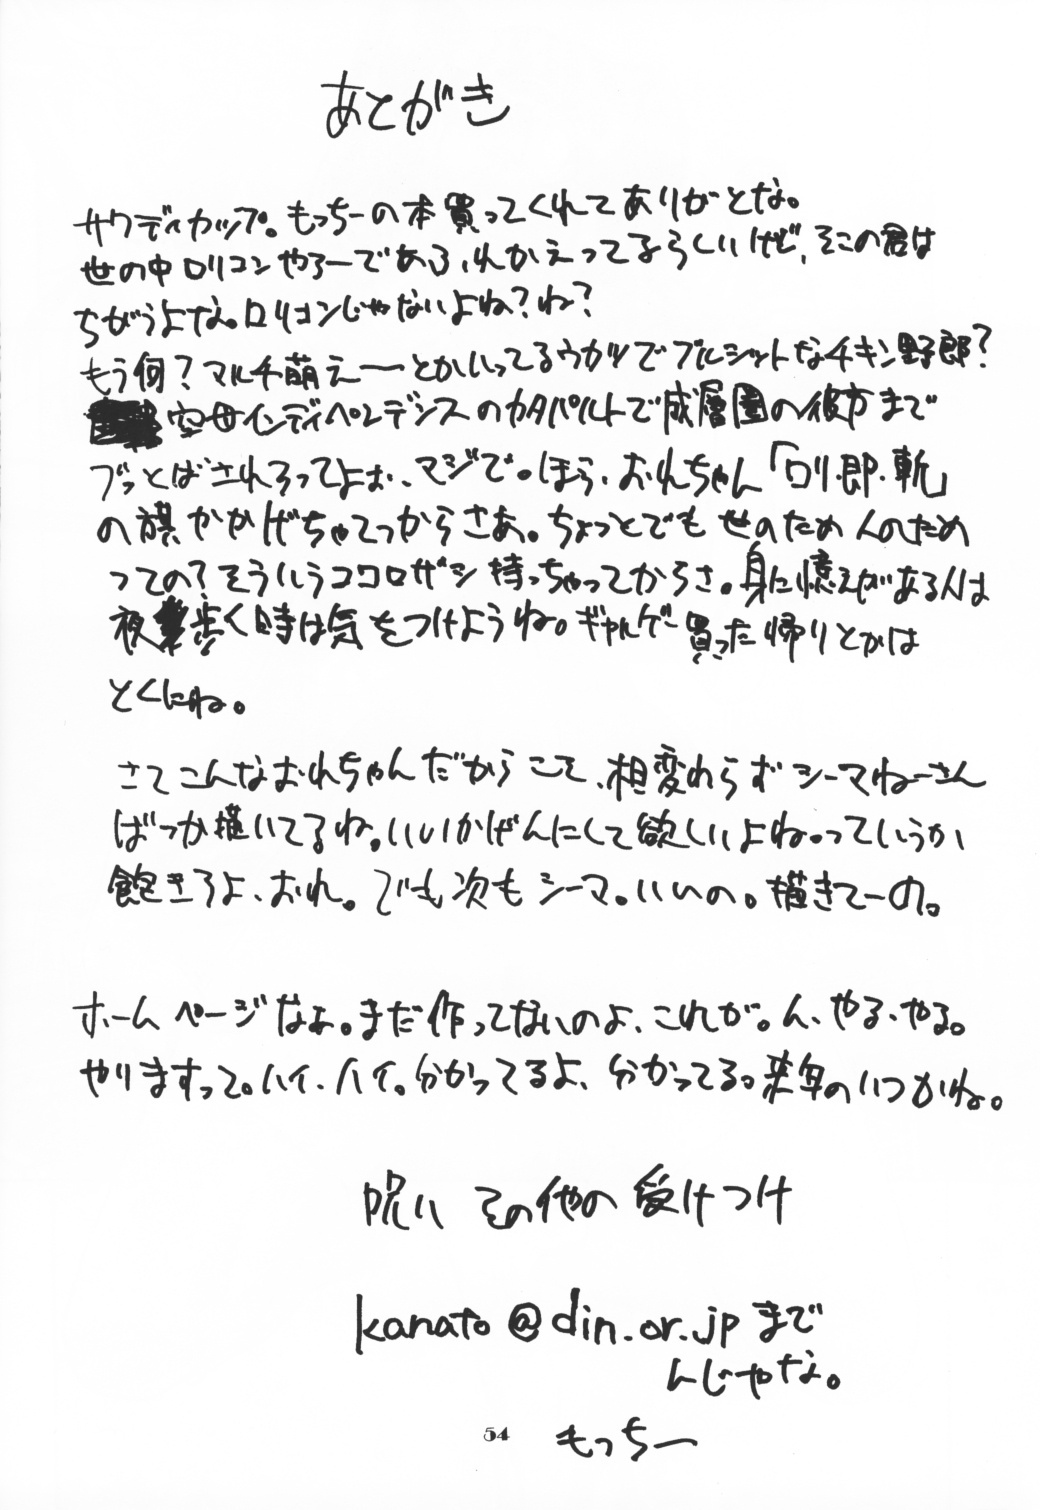 あとがき
サウディカップ。もっちーの本買ってくれてありがとな。
世の中ロリコンやろーであふれかえってるらしいけど、そこの君は
ちがうよな。ロリコンじゃないよね?ね?
もう何?マルチ萌えーとかいってるウカツでブルシットなチキン野郎?
空母インディペンデンスのカタパルトで成層圏の彼方まで
ブッとばされろってよぉ、マジで。ほら、おれちゃん「ロリ・即・斬」
の旗かかげちゃてっからさあ。ちょっとでも世のため人のため
っての?そういうココロザシ持っちゃってからさ。身に憶えがある人は
夜歩く時は気をつけようね。ギャルゲー買った帰りとかは
とくにね。
さてこんなおれちゃんだからこそ、相変わらずシーマねーさん
ばっか描いてるね。いいかげんにして欲しいよね。っていうか
飽きろよ、おれ。でも次もシーマ。いいの。描きてーの。
ホームページなぁ。まだ作ってないのよ、これが。ん、やる、やる。
やりますって。ハイ、ハイ。分かってるよ、分かってる。来年のいつかね。
呪い その他の受けつけ
kanato@din.or.jpまで
んじゃな。
もっちー
54